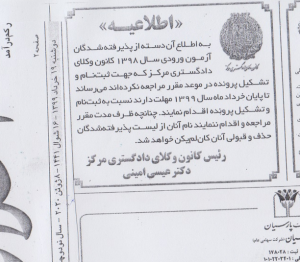 «اطلاعیه»
به اطلاع آن دسته از پذیرفته شدگان
آزمون ورودی سال ۱۳۹۸ کانون وکلای
دادگستری مرکز که جهت ثبت نام و
تشکیل پرونده در موعد مقرر مراجعه نکرده اند می رساند
تا پایان خرداد ماه سال ۱۳۹۹ مهلت دارند نسبت به ثبت نام
و تشکیل پرونده اقدام نمایند. چنانچه ظرف مدت مقرر
مراجعه و اقدام ننمایند نام آنان از لیست پذیرفته شدگان
حذف و قبولی آنان کان لم یکن خواهد شد.
رئیس کانون وکلای دادگستری مرکز
دکتر عیسی امینی
صفحه ۲
دوشنبه ۱۹ خرداد ۱۳۹۹ - ۱۶ شوال ۱۴۴۱ - ۸ ژوئن ۲۰۲۰ - سال نود و